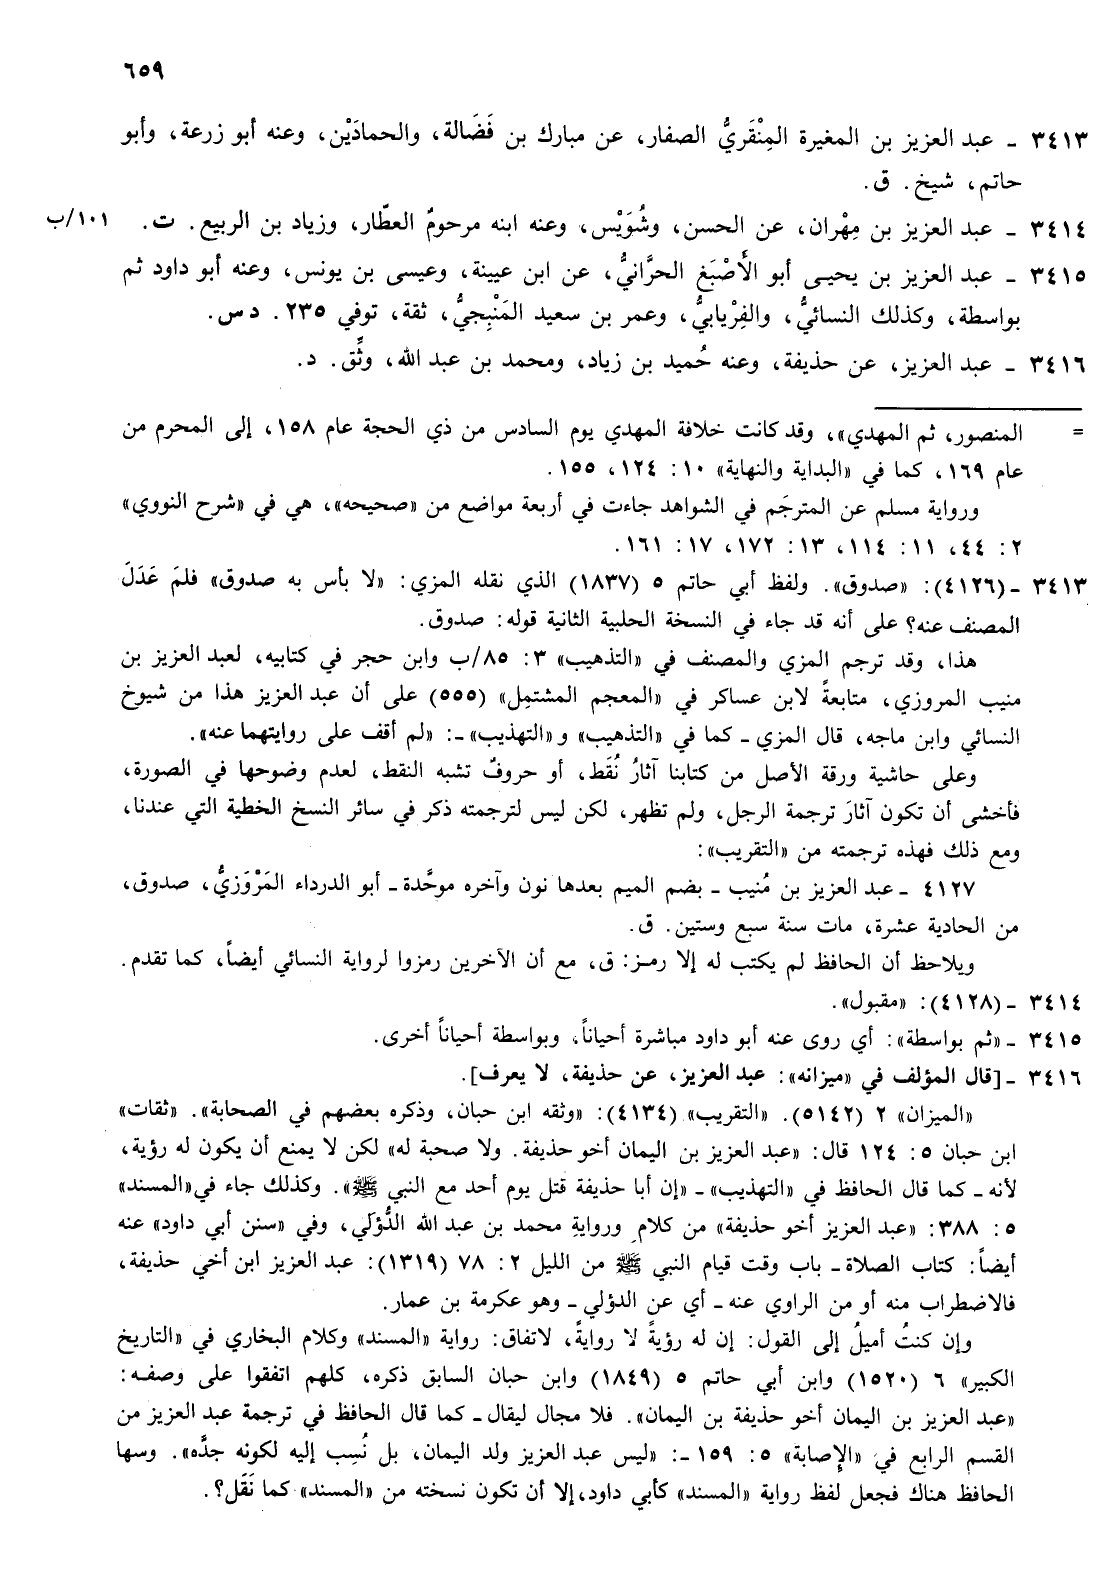 ٦٥٩
٣٤١٣ ـ عبد العزيز بن المغيرة المِنْقَريُّ الصفار، عن مبارك بن فَضَالة، والحمادَيْن، وعنه أبو زرعة، وأبو
حاتم، شيخ. ق.
٣٤١٤ ـ عبد العزيز بن مِهْران، عن الحسن، وشُوَيْس، وعنه ابنه مرحومٌ العطّار، وزياد بن الربيع. ت. ١٠١/ب
٣٤١٥ ـ عبد العزيز بن يحيـى أبو الأَصْبَغ الحرَّانيُّ، عن ابن عيينة، وعيسى بن يونس، وعنه أبو داود ثم
بواسطة، وكذلك النسائيُّ، والفِرْيابيُّ، وعمر بن سعيد المَنْبِجيُّ، ثقة، توفي ٢٣٥. د س.
٣٤١٦ ـ عبد العزيز، عن حذيفة، وعنه حُميد بن زياد، ومحمد بن عبد الله، وثِّق. د.
= المنصور، ثم المهدي»، وقد كانت خلافة المهدي يوم السادس من ذي الحجة عام ١٥٨، إلى المحرم من
عام ١٦٩، كما في «البداية والنهاية» ١٠: ١٢٤، ١٥٥.
ورواية مسلم عن المترجَم في الشواهد جاءت في أربعة مواضع من «صحيحه»، هي في «شرح النووي»
٢: ٤٤، ١١: ١١٤، ١٣: ١٧٢، ١٧: ١٦١.
٣٤١٣ ـ (٤١٢٦): «صدوق». ولفظ أبي حاتم ٥ (١٨٣٧) الذي نقله المزي: «لا بأس به صدوق» فلمَ عَدَلَ
المصنف عنه؟ على أنه قد جاء في النسخة الحلبية الثانية قوله: صدوق.
هذا، وقد ترجم المزي والمصنف في «التذهيب» ٣: ٨٥/ب وابن حجر في كتابيه، لعبد العزيز بن
منيب المروزي، متابعةً لابن عساكر في «المعجم المشتمِل» (٥٥٥) على أن عبد العزيز هذا من شيوخ
النسائي وابن ماجه، قال المزي ـ كما في «التذهيب» و«التهذيب» ـ: «لم أقف على روايتهما عنه».
وعلى حاشية ورقة الأصل من كتابنا آثارُ نُقَط، أو حروفٌ تشبه النقط، لعدم وضوحها في الصورة،
فأخشى أن تكون آثارَ ترجمة الرجل، ولم تظهر، لكن ليس لترجمته ذكر في سائر النسخ الخطية التي عندنا،
ومع ذلك فهذه ترجمته من «التقريب»:
٤١٢٧ ـ عبد العزيز بن مُنيب ـ بضم الميم بعدها نون وآخره موحَّدة ـ أبو الدرداء المَرْوَزيُّ، صدوق،
من الحادية عشرة، مات سنة سبع وستين. ق.
ويلاحظ أن الحافظ لم يكتب له إلا رمز: ق، مع أن الآخرين رمزوا لرواية النسائي أيضاً، كما تقدم.
٣٤١٤ ـ (٤١٢٨): «مقبول».
٣٤١٥ ـ «ثم بواسطة»: أي روى عنه أبو داود مباشرة أحياناً، وبواسطة أحياناً أخرى.
٣٤١٦ ـ [قال المؤلف في «ميزانه»: عبد العزيز، عن حذيفة، لا يعرف].
«الميزان» ٢ (٥١٤٢). «التقريب» (٤١٣٤): «وثقه ابن حبان، وذكره بعضهم في الصحابة». «ثقات»
ابن حبان ٥: ١٢٤ قال: «عبد العزيز بن اليمان أخو حذيفة. ولا صحبة له» لكن لا يمنع أن يكون له رؤية،
لأنه ـ كما قال الحافظ في «التهذيب» ـ «إن أبا حذيفة قتل يوم أحد مع النبي ﷺ». وكذلك جاء في «المسند»
٥: ٣٨٨: «عبد العزيز أخو حذيفة» من كلام ورواية محمد بن عبد الله الدُّؤَلي، وفي «سنن أبي داود» عنه
أيضاً: كتاب الصلاة ـ باب وقت قيام النبي ﷺ من الليل ٢: ٧٨ (١٣١٩): عبد العزيز ابن أخي حذيفة،
فالاضطراب منه أو من الراوي عنه ـ أي عن الدؤلي ـ وهو عكرمة بن عمار.
وإن كنتُ أميلُ إلى القول: إن له رؤيةً لا روايةً، لاتفاق: رواية «المسند» وكلام البخاري في «التاريخ
الكبير» ٦ (١٥٢٠) وابن أبي حاتم ٥ (١٨٤٩) وابن حبان السابق ذكره، كلهم اتفقوا على وصفـه:
«عبد العزيز بن اليمان أخو حذيفة بن اليمان». فلا مجال ليقال ـ كما قال الحافظ في ترجمة عبد العزيز من
القسم الرابع في «الإصابة» ٥: ١٥٩ ـ: «ليس عبد العزيز ولد اليمان، بل نُسِب إليه لكونه جدَّه». وسها
الحافظ هناك فجعل لفظ رواية «المسند» كأبي داود، إلا أن تكون نسخته من «المسند» كما نَقَل؟.